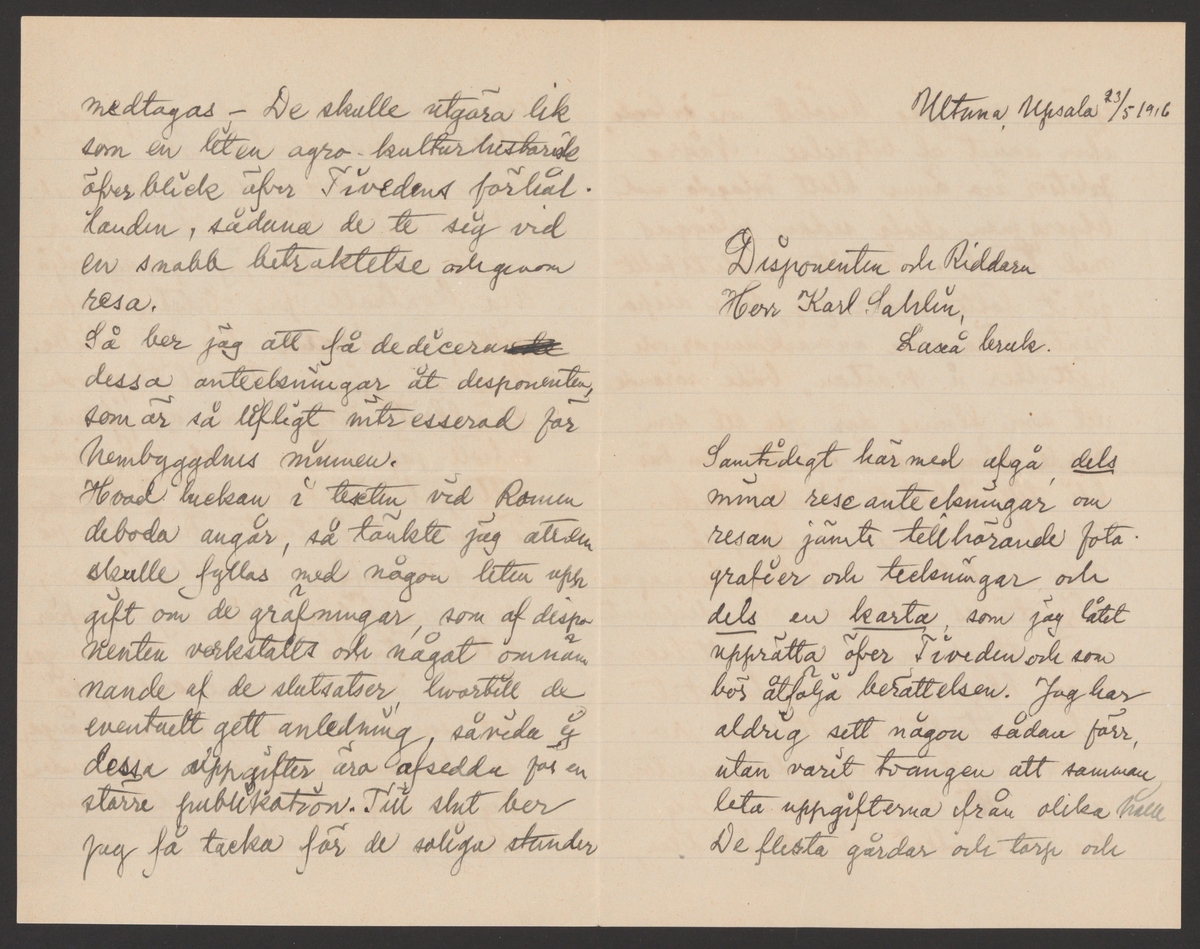 Ultuna, Upsala 23/5 1916
Disponenten och Riddaren
Herr Karl Sahlin,
Laxå bruk.
Samtidigt härmed afgå dels
mina reseanteckningar om
resan jämte tillhörande foto-
grafier och teckningar och
dels en karta, som jag låtit
upprätta öfver Tiveden och som
bör åtfölja berättelsen. Jag har
aldrig sett någon sådan förr,
utan varit tvungen att samman
leta uppgifterna från olika håll
De flesta gårdar och torp och
medtagas – De skulle utgöra lik
som en liten agro-kulturhistorisk
öfverblick öfver Tivedens förhål-
landen, sådana de te sig vid
en snabb betraktelse och genom
resa.
Så ber jag att få dedicera
dessa anteckningar åt disponenten,
som är så lifligt intresserad för
hembygdens minnen.
Hvad luckan i texten vid Ramun
deboda angår, så tänkte jag att den
skulle fyllas med någon liten upp
gift om de gräfningar, som af dispo
nenten verkstälts och något omnäm
nande af de slutsatser, hvartill de
eventuelt gett anledning, såvida ej
dessa uppgifter äro afsedda för en
större publikation. Till slut ber
jag få tacka för de soliga stunder